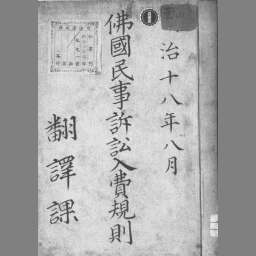 治十八年八月
佛國民事訴訟入費規則
翻譯課